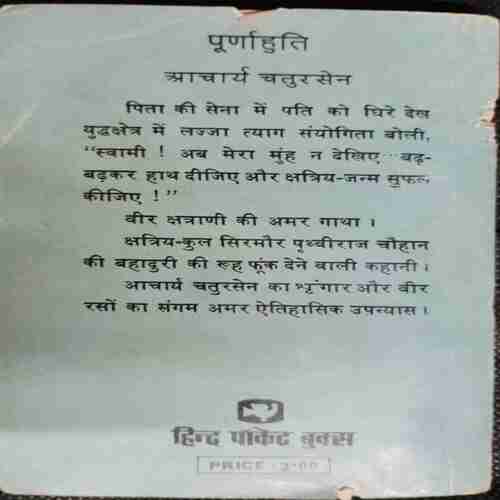 पूर्णाहुति
आचार्य चतुरसेन
पिता की सेना में पति को घिरे देख
युद्धक्षेत्र में लज्जा त्याग संयोगिता बोली,
"स्वामी ! अब मेरा मुंह न देखिए...बढ़-
बढ़कर हाथ दीजिए और क्षत्रिय-जन्म सुफल
कीजिए !"
वीर क्षत्राणी की अमर गाथा ।
क्षत्रिय-कुल सिरमौर पृथ्वीराज चौहान
की बहादुरी की रूह फूंक देने वाली कहानी ।
आचार्य चतुरसेन का शृंगार और वीर
रसों का संगम अमर ऐतिहासिक उपन्यास ।
हिन्द पॉकेट बुक्स
PRICE : 3-00